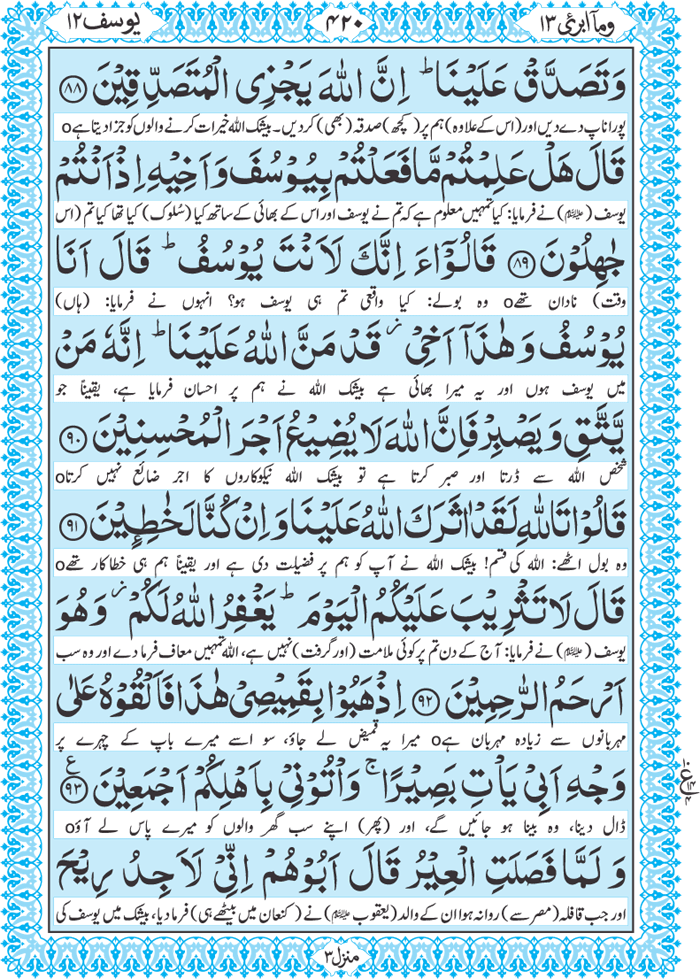 وما ابرئ ۱۳ ۴۲۰ یوسف ۱۲
وَتَصَدَّقْ عَلَيْنَا ؕ اِنَّ اللّٰهَ يَجْزِى الْمُتَصَدِّقِيْنَ ﴿۸۸﴾
پورا ناپ دے دیں اور (اس کے علاوہ) ہم پر (کچھ) صدقہ (بھی) کر دیں۔ بیشک اللہ خیرات کرنے والوں کو جزا دیتا ہے o
قَالَ هَلْ عَلِمْتُمْ مَّا فَعَلْتُمْ بِيُوْسُفَ وَاَخِيْهِ اِذْ اَنْتُمْ
یوسف (ﷺ) نے فرمایا: کیا تمہیں معلوم ہے کہ تم نے یوسف اور اس کے بھائی کے ساتھ کیا (سُلوک) کیا تھا کیا تم (اس
جٰهِلُوْنَ ﴿۸۹﴾ قَالُوْۤا ءَاِنَّكَ لَاَنْتَ يُوْسُفُ ؕ قَالَ اَنَا
وقت) نادان تھے o وہ بولے: کیا واقعی تم ہی یوسف ہو؟ انہوں نے فرمایا: (ہاں)
يُوْسُفُ وَهٰذَاۤ اَخِىْ ؗ قَدْ مَنَّ اللّٰهُ عَلَيْنَا ؕ اِنَّهٗ مَنْ
میں یوسف ہوں اور یہ میرا بھائی ہے بیشک اللہ نے ہم پر احسان فرمایا ہے، یقیناً جو
يَّتَّقِ وَيَصْبِرْ فَاِنَّ اللّٰهَ لَا يُضِيْعُ اَجْرَ الْمُحْسِنِيْنَ ﴿۹۰﴾
شخص اللہ سے ڈرتا اور صبر کرتا ہے تو بیشک اللہ نیکوکاروں کا اجر ضائع نہیں کرتا o
قَالُوْا تَاللّٰهِ لَقَدْ اٰثَرَكَ اللّٰهُ عَلَيْنَا وَاِنْ كُنَّا لَخٰطِـِٕيْنَ ﴿۹۱﴾
وہ بول اٹھے: اللہ کی قسم! بیشک اللہ نے آپ کو ہم پر فضیلت دی ہے اور یقیناً ہم ہی خطاکار تھے o
قَالَ لَا تَثْرِيْبَ عَلَيْكُمُ الْيَوْمَ ؕ يَغْفِرُ اللّٰهُ لَكُمْ ؗ وَهُوَ
یوسف (ﷺ) نے فرمایا: آج کے دن تم پر کوئی ملامت (اور گرفت) نہیں ہے، اللہ تمہیں معاف فرما دے اور وہ سب
اَرْحَمُ الرّٰحِمِيْنَ ﴿۹۲﴾ اِذْهَبُوْا بِقَمِيْصِىْ هٰذَا فَاَلْقُوْهُ عَلٰى
مہربانوں سے زیادہ مہربان ہے o میرا یہ قمیض لے جاؤ، سو اسے میرے باپ کے چہرے پر
وَجْهِ اَبِىْ يَاْتِ بَصِيْرًا ۚ وَاْتُوْنِىْ بِاَهْلِكُمْ اَجْمَعِيْنَ ﴿۹۳﴾ ع
ڈال دینا، وہ بینا ہو جائیں گے، اور (پھر) اپنے سب گھر والوں کو میرے پاس لے آؤ o
وَلَمَّا فَصَلَتِ الْعِيْرُ قَالَ اَبُوْهُمْ اِنِّىْ لَاَجِدُ رِيْحَ
اور جب قافلہ (مصر سے) روانہ ہوا ان کے والد (یعقوب ﷺ) نے (کنعان میں بیٹھے ہی) فرما دیا، بیشک میں یوسف کی
منزل ۳